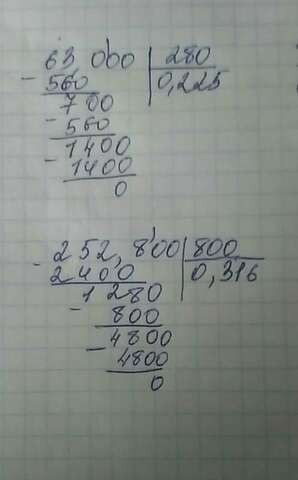 63 000 280
- 560 0,225
700
- 560
1400
- 1400
0
- 252,800 800
2400 0,316
1 280
- 800
- 4800
4800
0